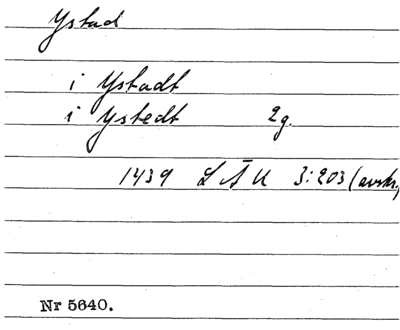 Ystad
i Ystadt
i Ystedt 2g.
1439 LÄU 3:203 (avskr.)
Nr 5640.